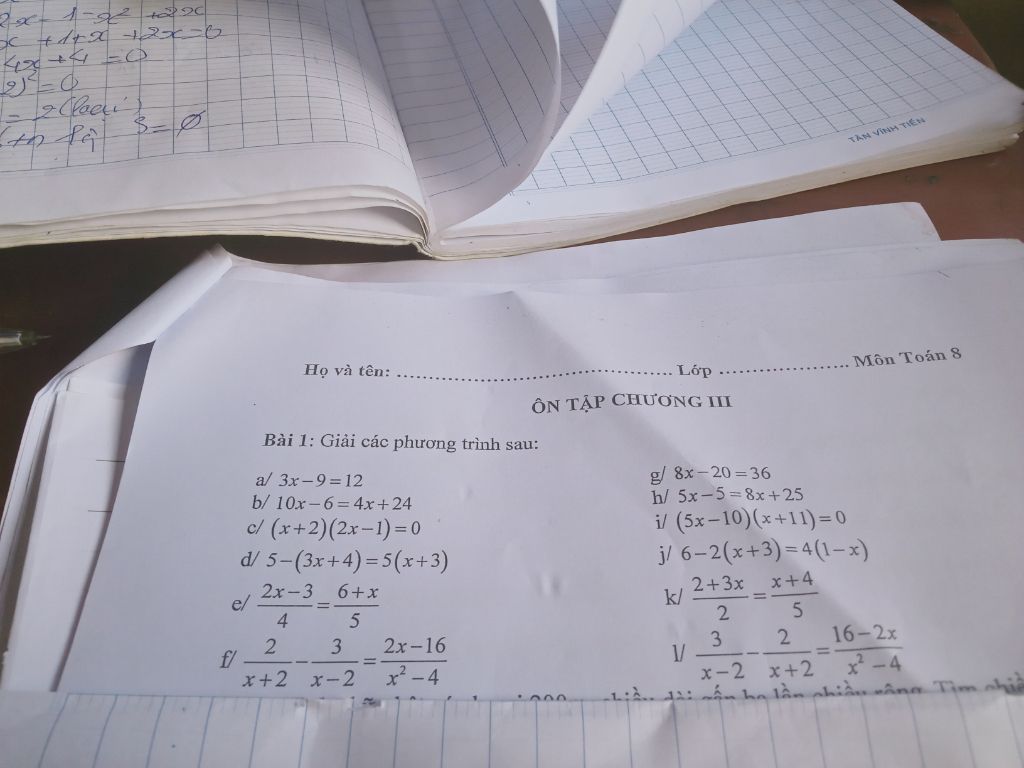 2x - 1 - x² + 2x
x + 1 + x + 2x = 0
4x + 4 = 0
2)² = 0
= 2 (loại)
S = ∅
TÂN VĨNH TIẾN
Họ và tên: .................................................. Lớp .................... Môn Toán 8
ÔN TẬP CHƯƠNG III
Bài 1: Giải các phương trình sau:
a/ 3x − 9 = 12
b/ 10x − 6 = 4x + 24
c/ (x + 2)(2x − 1) = 0
d/ 5 − (3x + 4) = 5(x + 3)
e/ (2x − 3)/4 = (6 + x)/5
f/ 2/(x + 2) − 3/(x − 2) = (2x − 16)/(x² − 4)
g/ 8x − 20 = 36
h/ 5x − 5 = 8x + 25
i/ (5x − 10)(x + 11) = 0
j/ 6 − 2(x + 3) = 4(1 − x)
k/ (2 + 3x)/2 = (x + 4)/5
l/ 3/(x − 2) − 2/(x + 2) = (16 − 2x)/(x² − 4)
chiều dài gấp ba lần chiều rộng. Tìm chiều